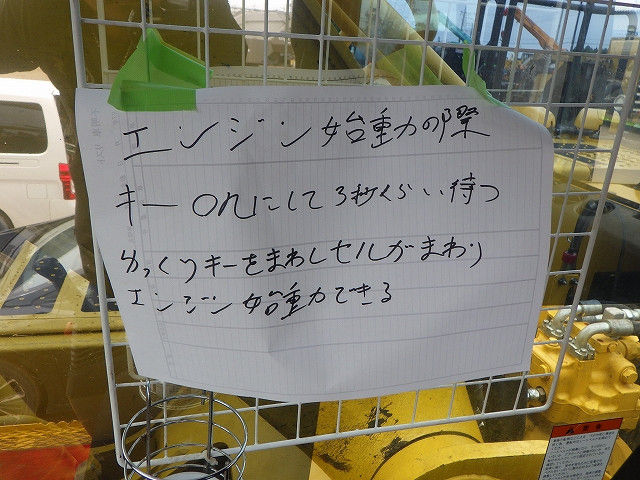 エンジン始動の際
キーONにして3秒くらい待つ
ゆっくりキーをまわしセルがまわり
エンジン始動できる